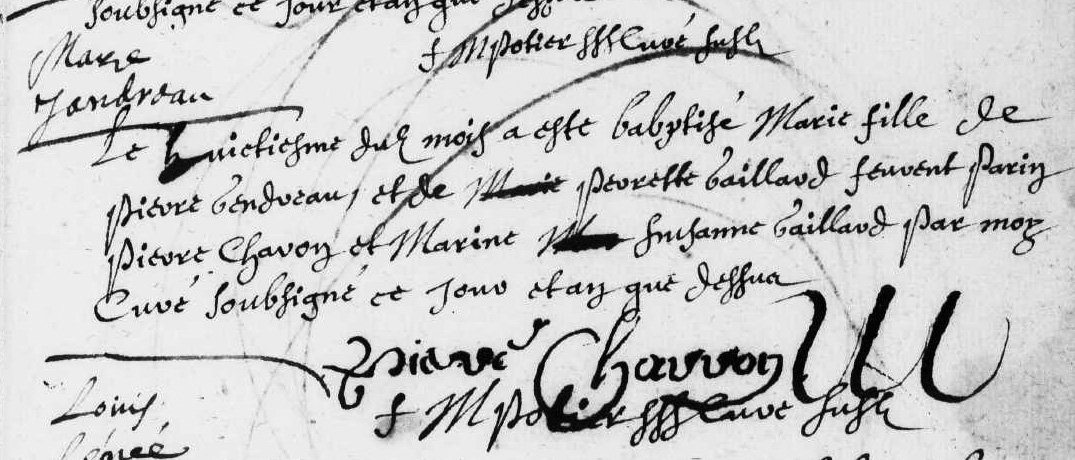 soubsigné ce jour et an que dessus
f M potier curé susd
Marie
Jandreau
Le huictiesme dud mois a esté babptisé Marie fille de
pierre Gendreau, et de perette Gaillard feurent parin
pierre Chavon et Marine susanne Gaillard par moy
Curé soubsigné ce jour et an que dessus
pierre Charron
f M potier curé susd
Louis